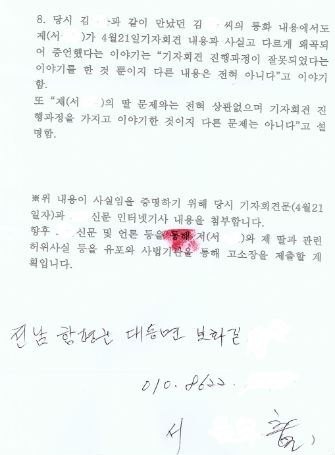 8. 당시 김 과 같이 만났던 김 씨의 통화 내용에서도
제(서 )가 4월21일기자회견 내용과 사실고 다르게 왜곡되
어 증언했다는 이야기는 "기자회견 진행과정이 잘못되었다는
이야기를 한 것 뿐이지 다른 내용은 전혀 아니다"고 이야기
함.
또 "제(서 )의 딸 문제와는 전혀 상관없으며 기자회견 진
행과정을 가지고 이야기한 것이지 다른 문제는 아니다"고 설
명함.
※위 내용이 사실임을 증명하기 위해 당시 기자회견문(4월21
일자)과 신문 인터넷기사 내용을 첨부합니다.
향후 . 신문 및 언론 등을 통해 저(서 )와 제 딸과 관련
허위사실 등을 유포와 사법기관을 통해 고소장을 제출할 계
획입니다.
전남 함평군 대동면 보화길
010. 8622.
서